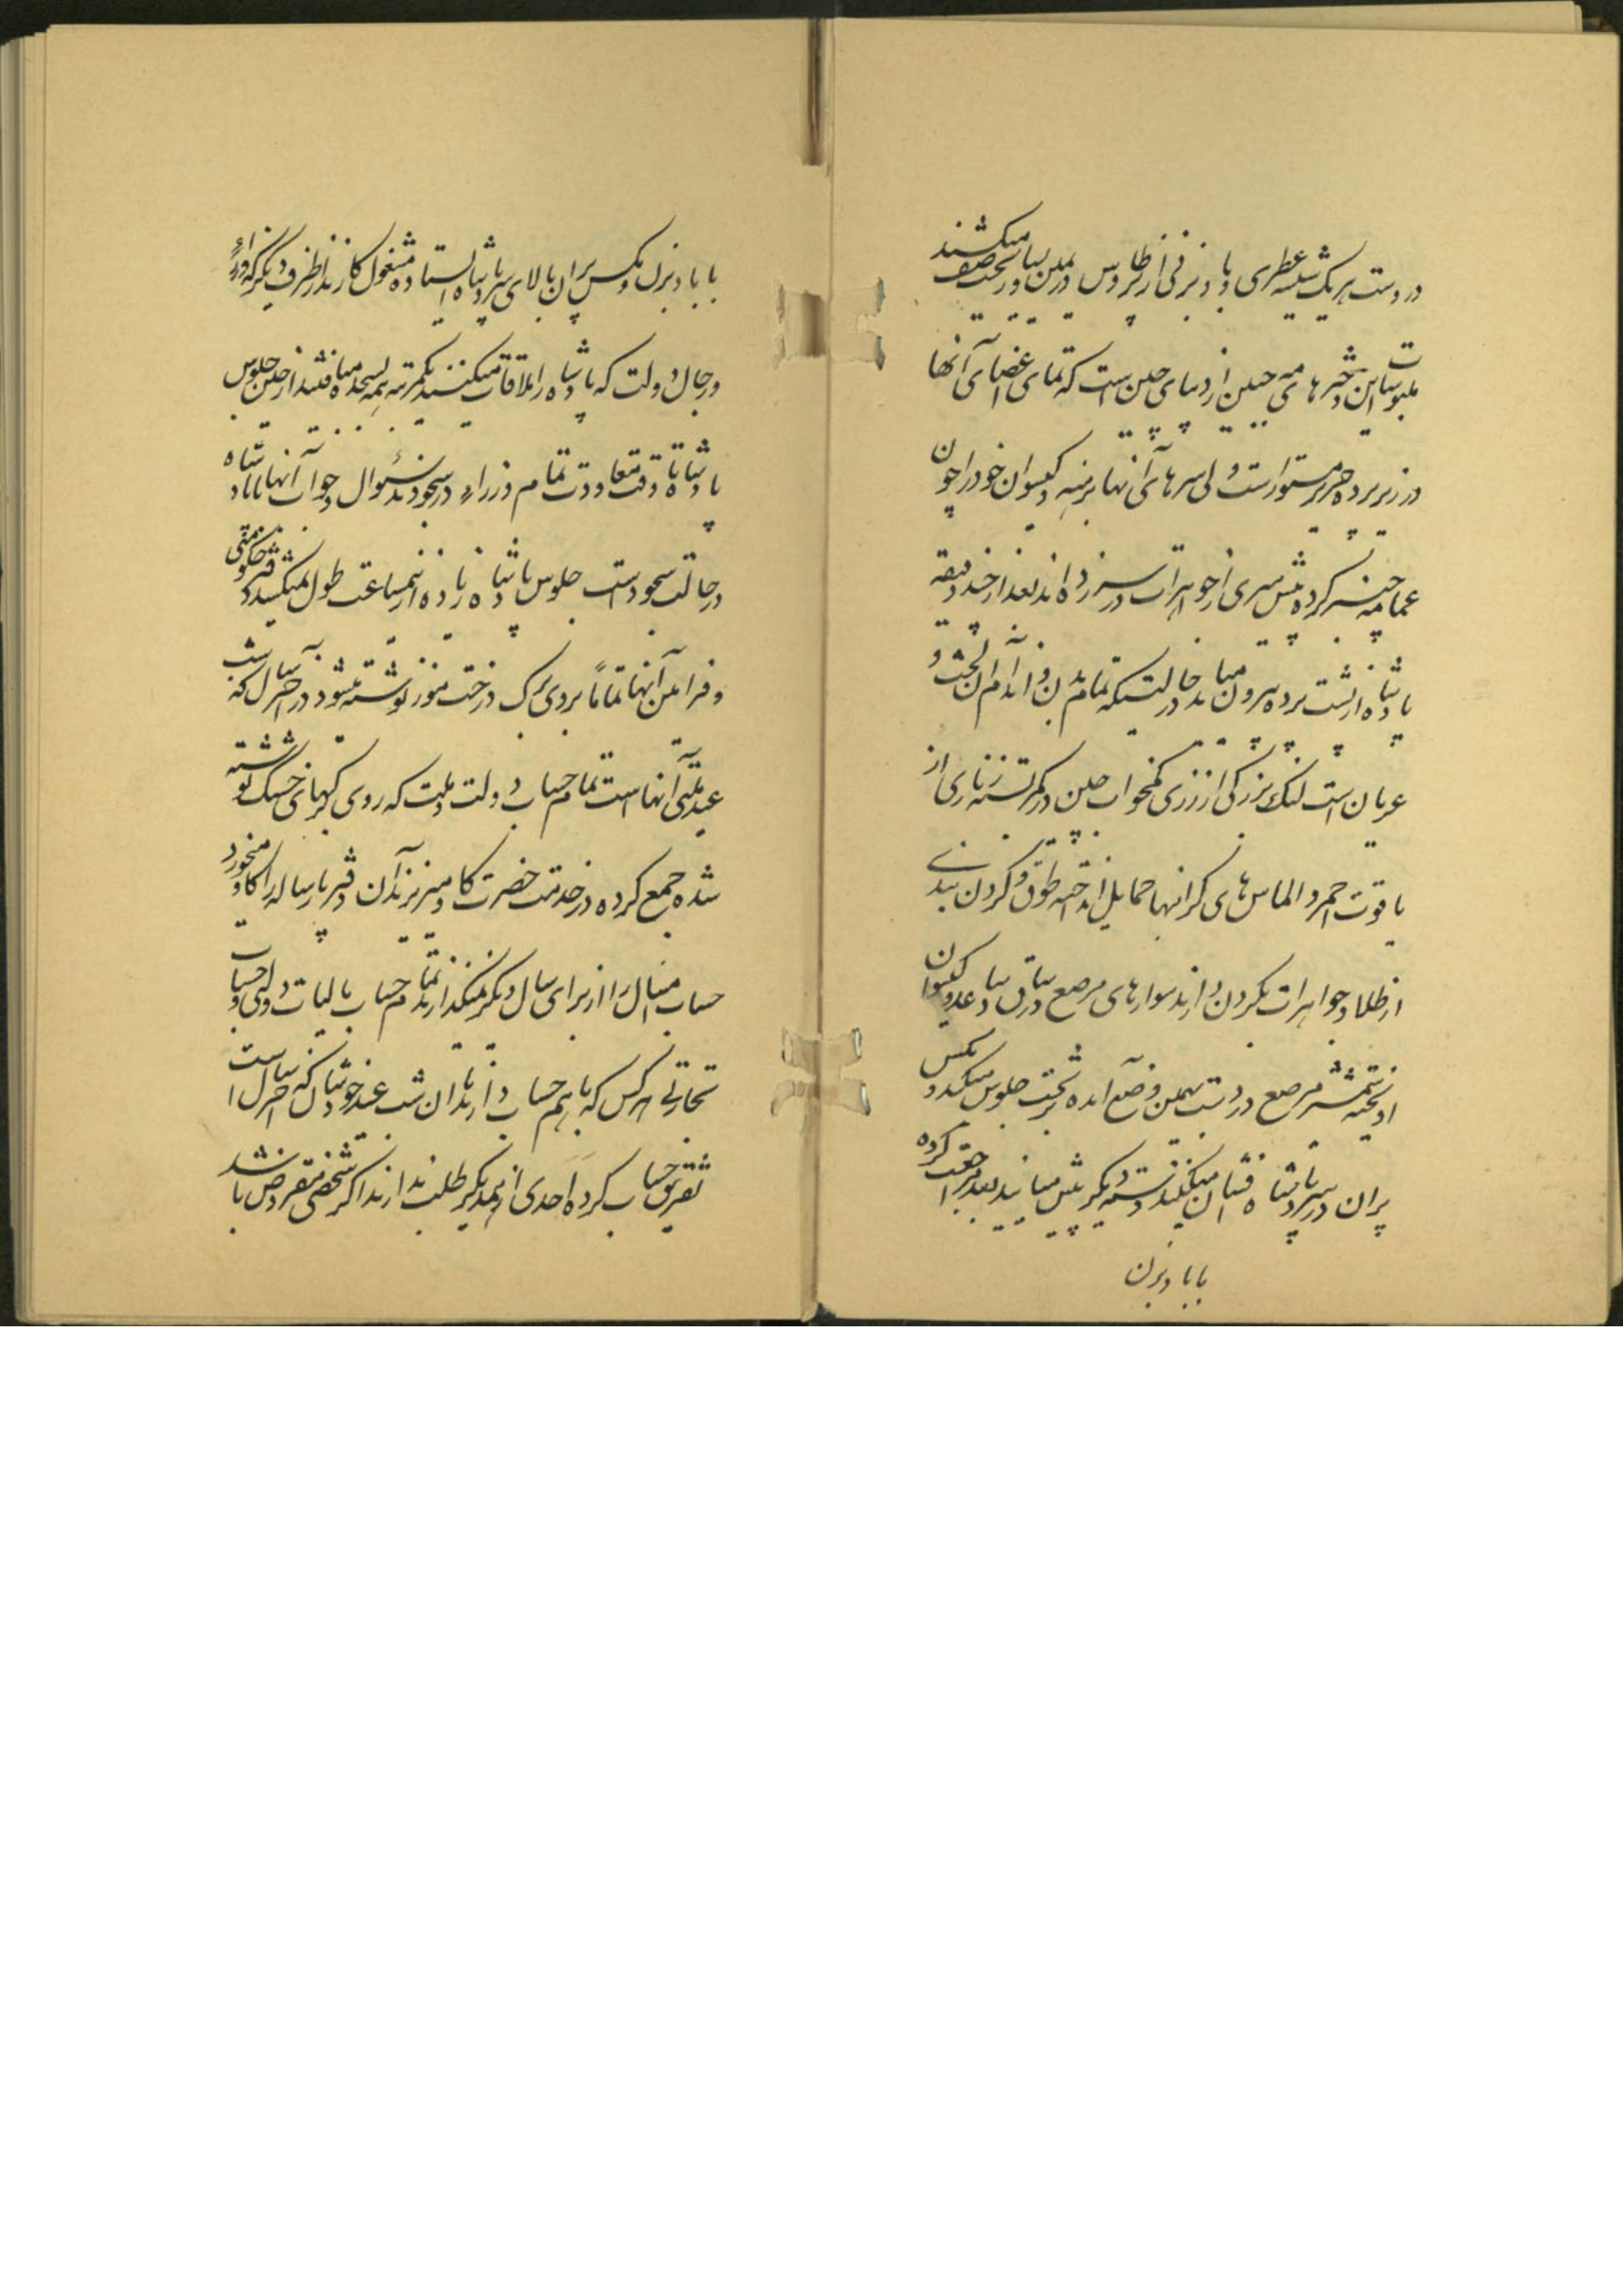 در دست هر یک شیشه عطری و بادبزنی از پر طاوس در یمین و یسار تخت صف میکشند
ملبوسات این دخترهای مه جبین از دیبای چین است که تمامی اعضای آنها
در زیر پرده حریر مستور است ولی سرهای آنها برهنه و گیسوان خود را چون
عمامه چنبر کرده پیش سری از جواهرات در سر زده اند بعد از چند دقیقه
پادشاه از پشت پرده بیرون میاید در حالتیکه تمام بدن و اندام آن لخت و
عریان است لنگ بزرگی از زری کمخواب چین در کمر بسته زناری از
یاقوت احمر و الماس های گرانبها حمایل انداخته طوق و گردن بندی
از طلا و جواهرات بگردن دارند سوارهای مرصع در ساق و ساعد و گیسوان
آویخته شمشیر مرصع در دست بهمین وضع آمده بر تخت جلوس میکند و مگس
پران در سر پادشاه افشان میکنند دسته دیگر پیش میایند بعد مراجعت کرده
بابادبزن
با بادبزن و مگس پران بالای سر پادشاه ایستاده مشغول کارند از طرف دیگر که وزراء
و رجال دولت که پادشاه را ملاقات میکنند یکمرتبه همه بسجده میافتند از حین جلوس
پادشاه تا وقت معاودت تمام وزراء در سجودند سؤال و جواب آنها با پادشاه
در حالت سجود است جلوس پادشاه زیاده از نیمساعت طول نمیکشد دفتر حکومتی
و فرامین آنها تماماً بروی برگ درخت موز نوشته میشود در آخر سال که شب
عید ملتی آنهاست تمام حساب دولت و ملت که روی برگهای خشک نوشته
شده جمع کرده در خدمت حضرت گاو میریزند آن دفتر یا رساله را گاو میخورد
حساب امسال را از برای سال دیگر نمیگذارند تمام حساب مالیات دولتی و حساب
تجارتی هر کس که با هم حساب دارند آن شب عید خودشان که آخر سال است
تفریق حساب کرده احدی از همدیگر طلب ندارند اگر شخصی مقروض باشد